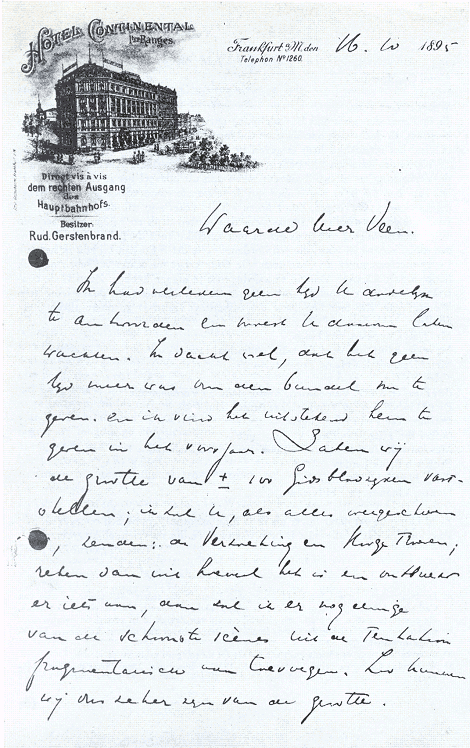 HOTEL CONTINENTAL
I-en Ranges
Frankfurt a/M. den 16. 10 1895
Telephon No 1260.
Direct vis à vis
dem rechten Ausgang
des
Hauptbahnhofs.
Besitzer
Rud. Gerstenbrand.
Waarde heer Veen.
Ik had verleden geen tijd U dadelijk
te antwoorden en moest U daarom laten
wachten. Ik dacht wel, dat het geen
tijd meer was om den bundel nu te
geven. en ik vind het uitstekend hem te
geven in het voorjaar. Laten wij
de grootte van ± 100 Gidsbladzijden vast-
stellen; ik zal U, als alles
, zenden: de Verzoeking en Hooge Troeven;
reken dan uit hoeveel het is en ontbreekt
er iets aan, dan zal ik er nog eenige
van de schoonste scènes uit de Tentation
fragmentarisch aan toevoegen. Zoo kunnen
wij ons zeker zijn van de grootte.